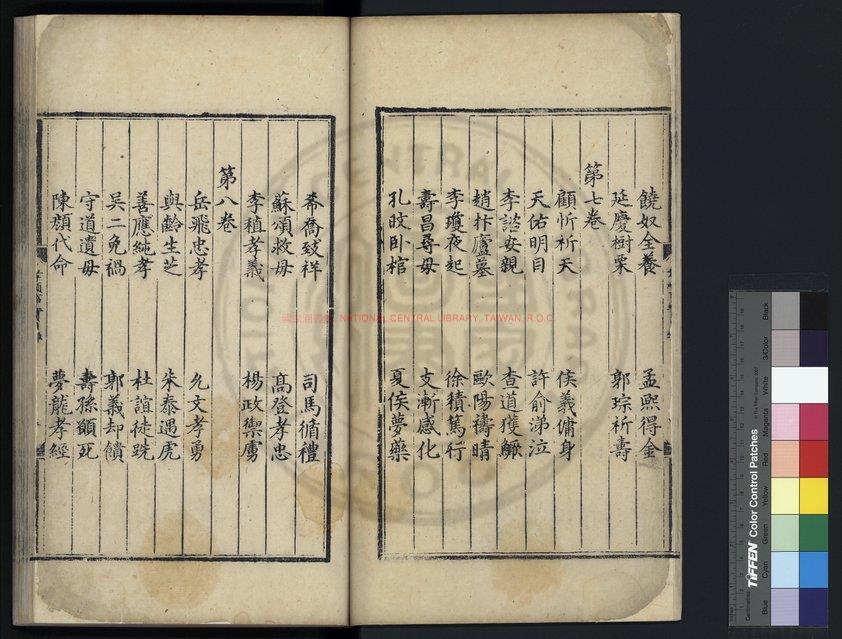 饒奴全養 孟熙得金
延慶樹栗 郭琮祈壽
第七卷
顧忻祈天 侯義傭身
天佑明目 許俞涕泣
李諮安親 查道獲鱖
趙抃廬墓 歐陽禱晴
李瓊夜起 徐積篤行
壽昌尋母 支漸感化
孔旼卧棺 夏侯夢藥
喬致祥 司馬循禮
蘇頌救母 高登孝忠
李植孝義 楊政禦虜
第八卷
岳飛忠孝 允文孝勇
與齡生芝 朱泰遇虎
善應純孝 杜誼徒跣
吳二免禍 郭義却饋
守道遺母 壽孫願死
陳顏代命 夢龍孝經
NATIONAL CENTRAL LIBRARY, TAIWAN, R.O.C.
TIFFEN Color Control Patches
Blue
Cyan
Green
Yellow
Red
Magenta
White
3/Color
Black